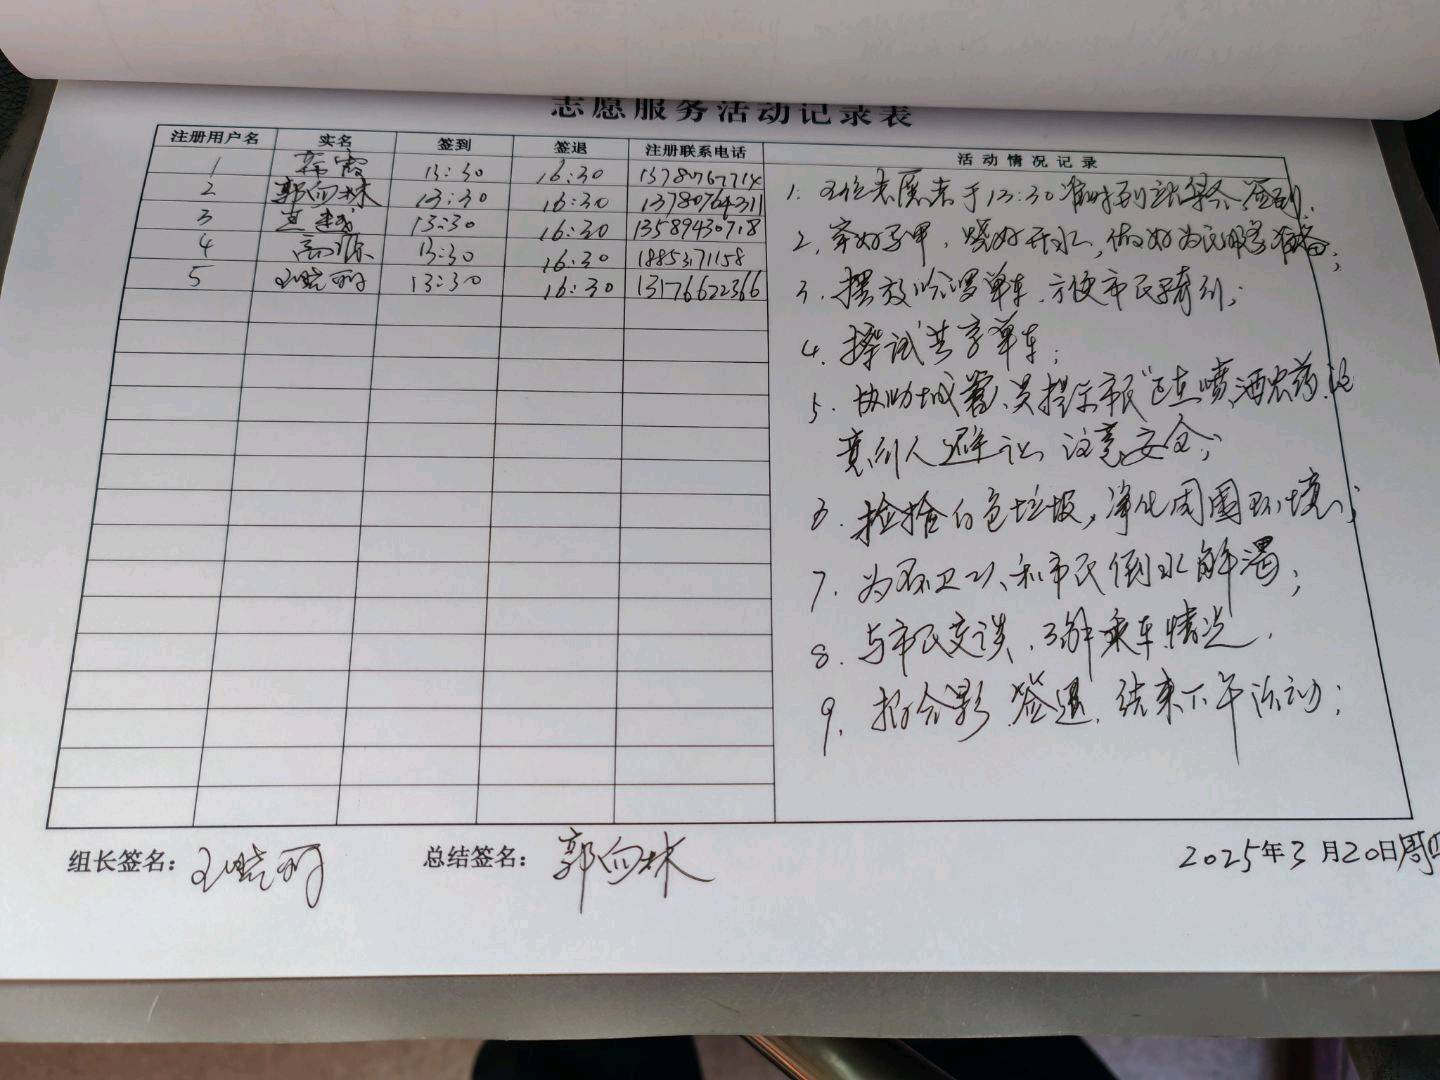 志愿服务活动记录表
注册用户名 实名 签到 签退 注册联系电话 活动情况记录
1 霞 13:30 16:30 13780767714
2 郭向林 13:30 16:30 13780764311
3 13:30 16:30 13589430718
4 13:30 16:30 1885371158
5 王晓丽 13:30 16:30 13176622366
1. 五位志愿者于13:30准时到站集合签到;
2. 穿好马甲,烧好开水,做好为民服务准备;
3. 摆放哈罗单车,方便市民骑行;
4. 擦试共享单车;
5. 协助城管人员提示市民"正在喷洒农药,注
意行人避让,注意安全;
6. 捡拾白色垃圾,净化周围环境;
7. 为环卫工人和市民倒水解渴;
8. 与市民交谈,了解乘车情况.
9. 拍合影 签退,结束下午活动;
组长签名: 王晓丽 总结签名: 郭向林 2025年3月20日周四